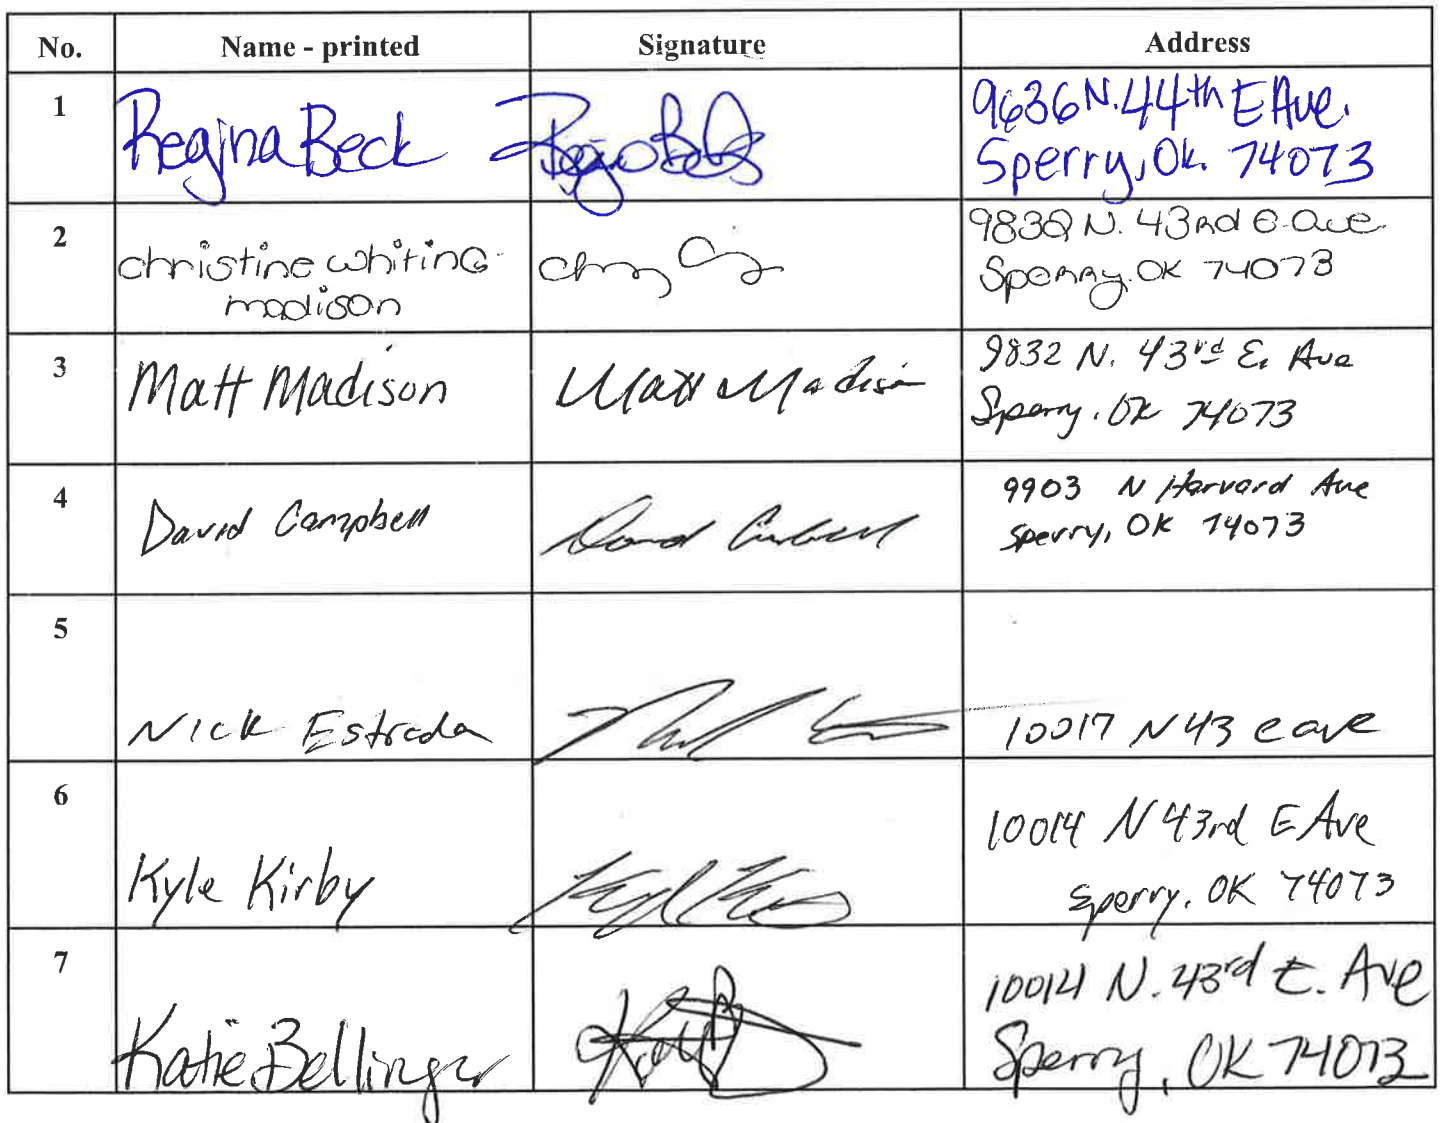 No. Name - printed Signature Address
1 Regina Beck Regina Beck 9636 N. 44th E Ave.
Sperry, Ok. 74073
2 christine whiting 9832 N. 43rd E. Ave
madison Sperry, OK 74073
3 Matt Madison Matt Madison 9832 N. 43rd E. Ave
Sperry, OK 74073
4 David Campbell David Campbell 9903 N Harvard Ave
Sperry, OK 74073
5
Nick Estrada 10017 N 43 e ave
6 10014 N 43rd E Ave
Kyle Kirby Sperry, OK 74073
7 10014 N. 43rd E. Ave
Katie Bellinger Sperry, OK 74073